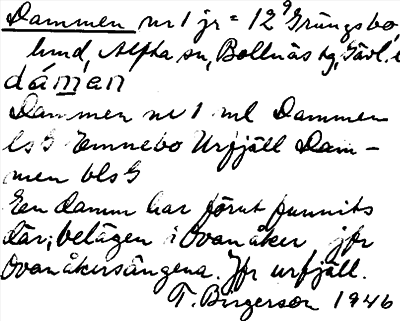 Dammen nr 1 jr = 12⁹ Grüngsbo,
lund, Alfta sn, Bollnäs tg, Gävl. l
dámen
Dammen nr 1 ml Dammen
ls G Emnebo Urfjäll Dam-
men bls G
Een damm har förut funnits
där; belägen i Ovanåker jfr
Ovanåkersängena. Jfr urfjäll.
T. Birgerson 1946